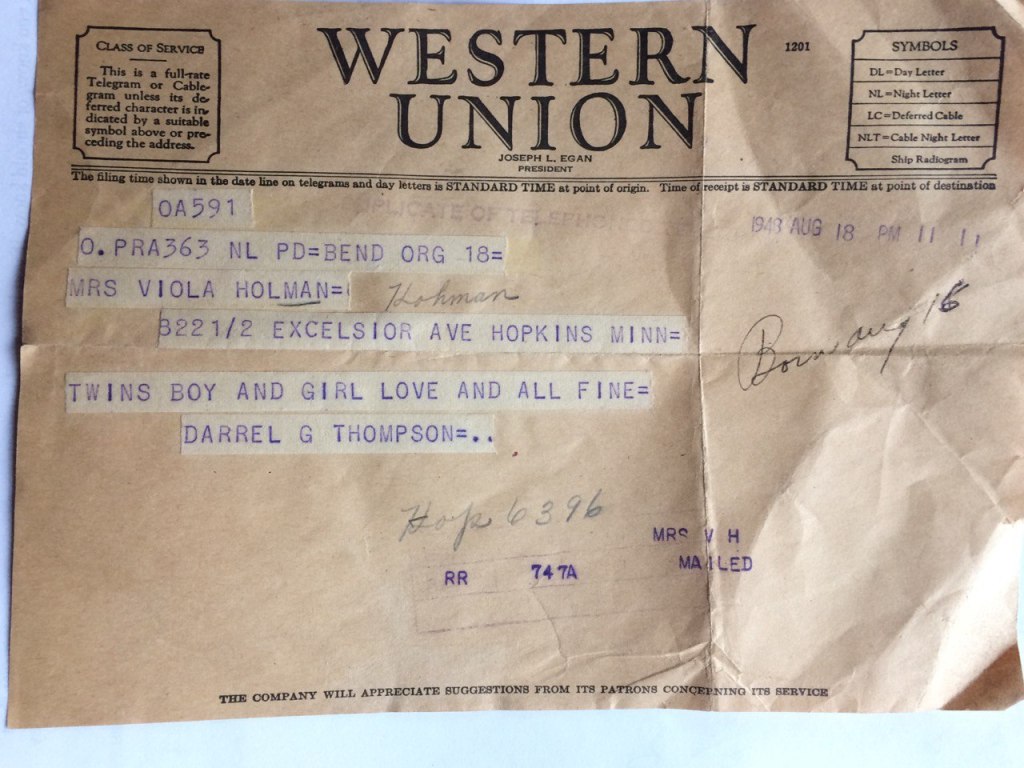 CLASS OF SERVICE
This is a full-rate
Telegram or Cable-
gram unless its de-
ferred character is in-
dicated by a suitable
symbol above or pre-
ceding the address.
WESTERN
UNION
1201
JOSEPH L. EGAN
PRESIDENT
SYMBOLS
DL=Day Letter
NL=Night Letter
LC=Deferred Cable
NLT=Cable Night Letter
Ship Radiogram
The filing time shown in the date line on telegrams and day letters is STANDARD TIME at point of origin. Time of receipt is STANDARD TIME at point of destination
OA591
DUPLICATE OF TELEPHONED
1948 AUG 18 PM 11 11
O.PRA363 NL PD=BEND ORG 18=
MRS VIOLA HOLMAN=
Hohman
3221/2 EXCELSIOR AVE HOPKINS MINN=
Born aug 16
TWINS BOY AND GIRL LOVE AND ALL FINE=
DARREL G THOMPSON=..
Hop 6396
MRS V H
RR 747A MAILED
THE COMPANY WILL APPRECIATE SUGGESTIONS FROM ITS PATRONS CONCERNING ITS SERVICE